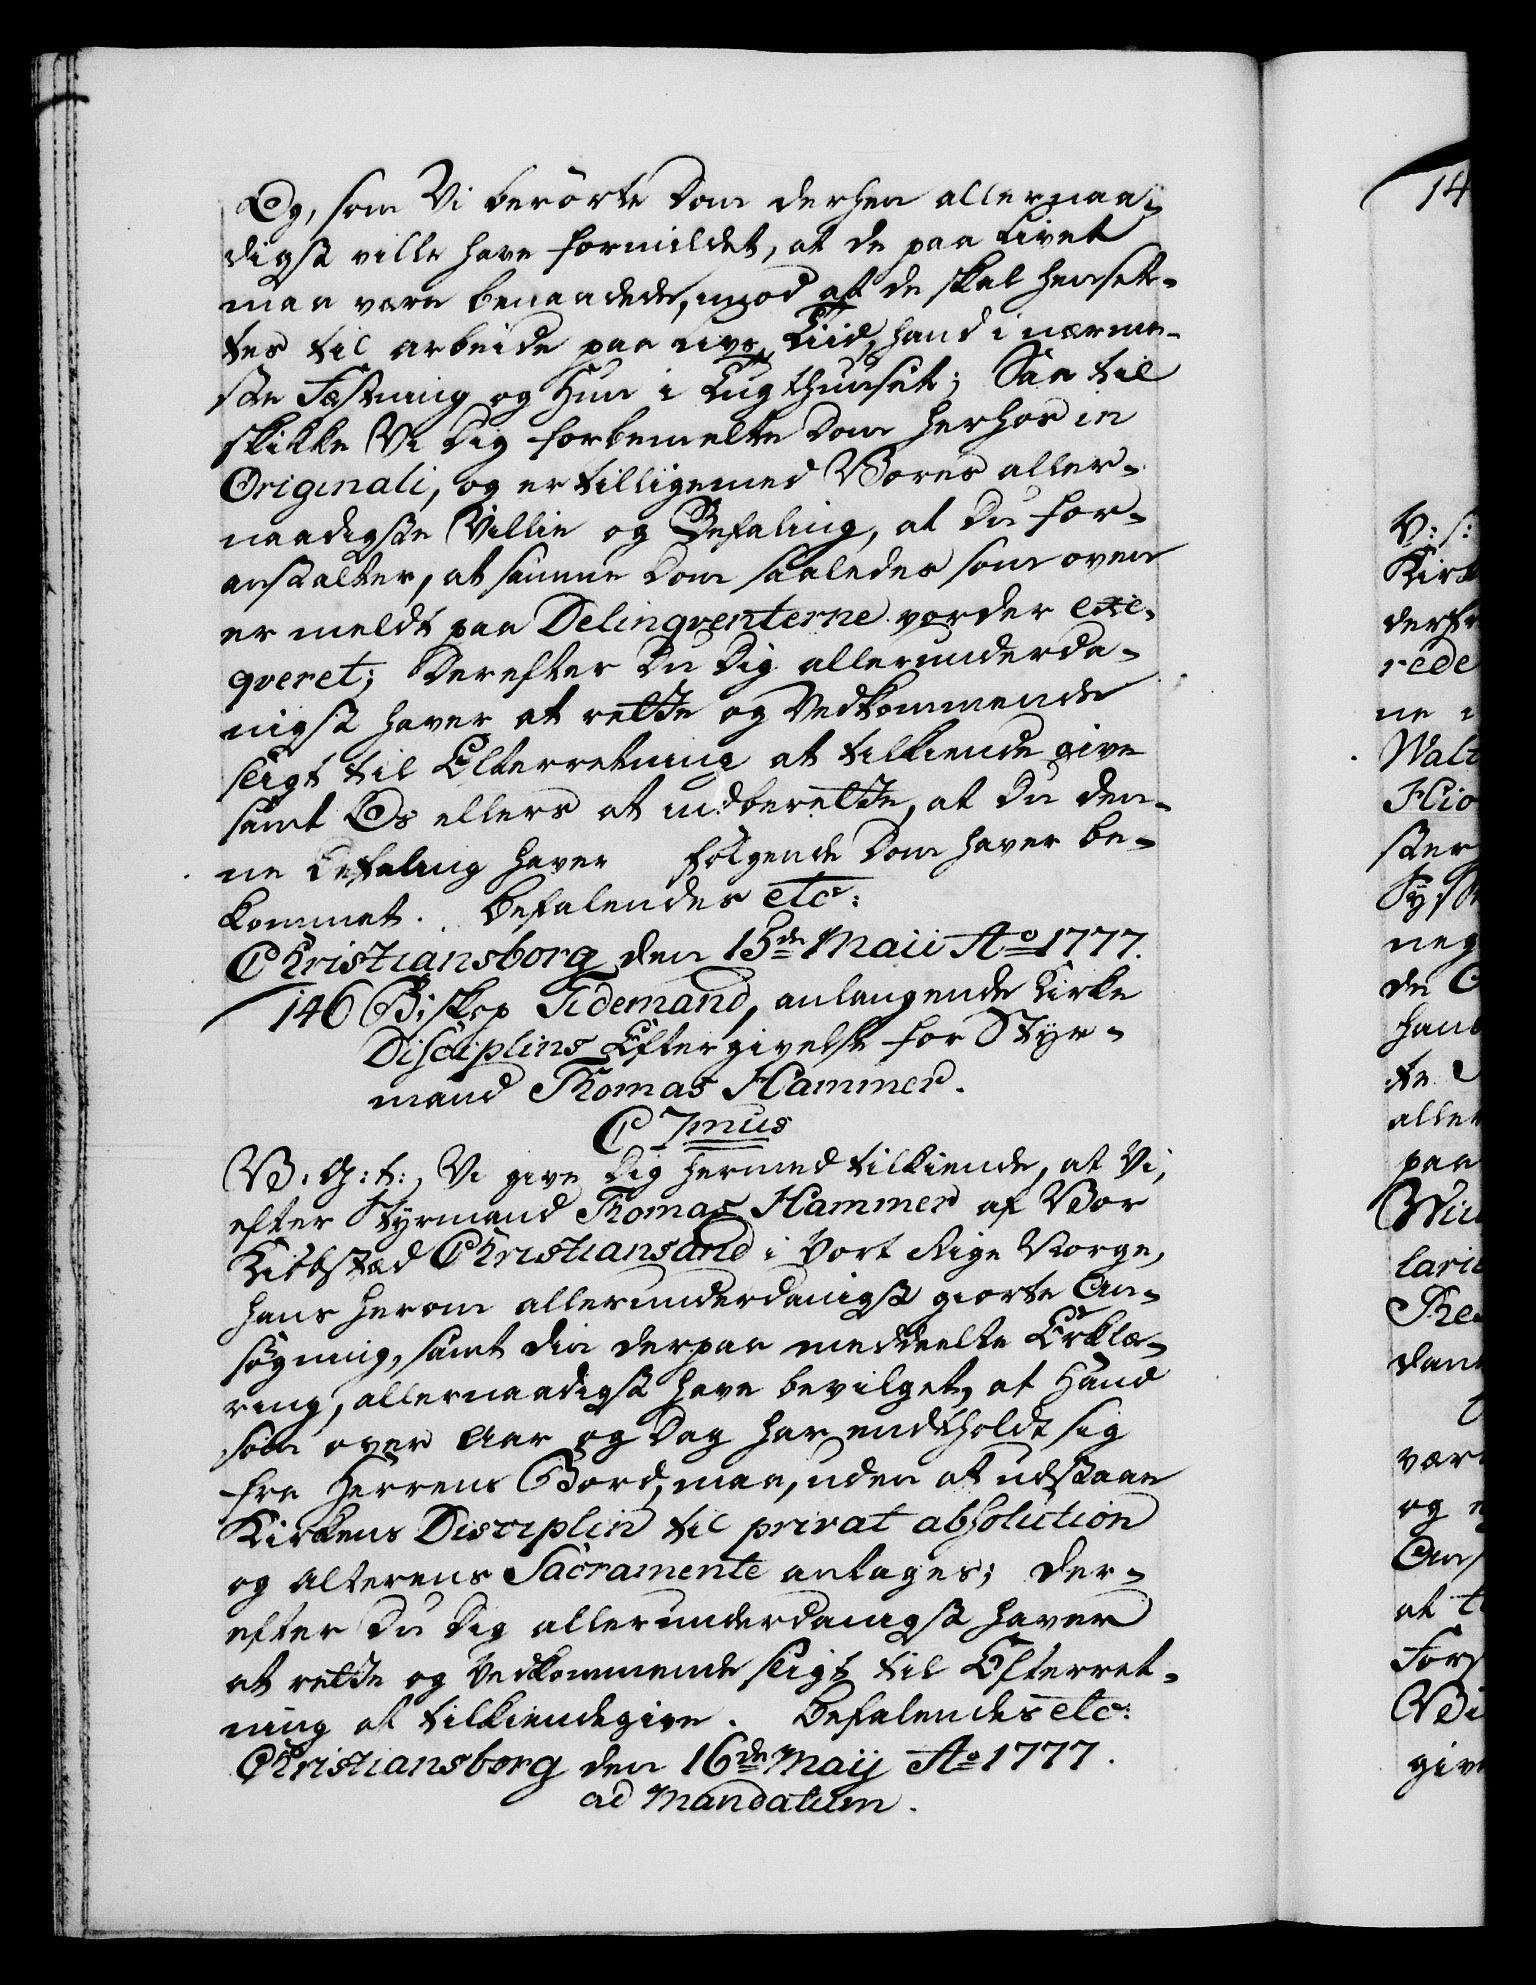 Og, som Vi berörte Dom derhen allernaa-
digst ville have formildet, at de paa Livet
maa være benaadede, mod at de skal hensæt-
tes til arbeide paa Livs Tiid, hand i nærme-
ste Fæstning og Hun i Tugthuuset; Saa til
skikke Vi Dig forbemelte Dom herhos in
Originali, og er tilligemed Vores aller-
naadigste Villie og Befaling, at Du for-
anstalter, at samme Dom saaledes som oven
er meldt paa Delinqventerne vorder exe-
qveret; Derefter Du Dig allerunderda-
nigst haver at rette og Vedkommende
sligt til Efterretning at tilkiende give
samt Os ellers at indberette, at Du den-
ne Befaling haver følgende Dom haver be-
kommet. Befalendes etc:
Christiansborg den 15de Maii Ao 1777.
146 Biskop Tidemand, anlangende Kirke
Disciplins Eftergivelse for Styr-
mand Thomas Hammer.
C 7mus
V: G: t:, Vi give Dig hermed tilkiende, at Vi,
efter Styrmand Thomas Hammer af Vor
Kiöbstæd Christiansand i Vort Rige Norge,
hans herom allerunderdanigst giorte An-
søgning, samt din derpaa meddeelte Erklæ-
ring, allernaadigst have bevilget, at Hand
som over Aar og Dag har endtholdt sig
fra Herrens Bord, maa, uden at udstaae
Kirkens Disciplin til privat absolution
og Alterens Sacramente antages; Der-
efter Du Dig allerunderdanigst haver
at rette og Vedkommende sligt til Efterret-
ning at tilkiendegive. Befalendes etc:
Christiansborg den 16de Maij Ao 1777.
ad Mandatum.
14
V: s:
Kir
rede
ne
Walt
neg
de
paa
Thea
vær
og
at
give